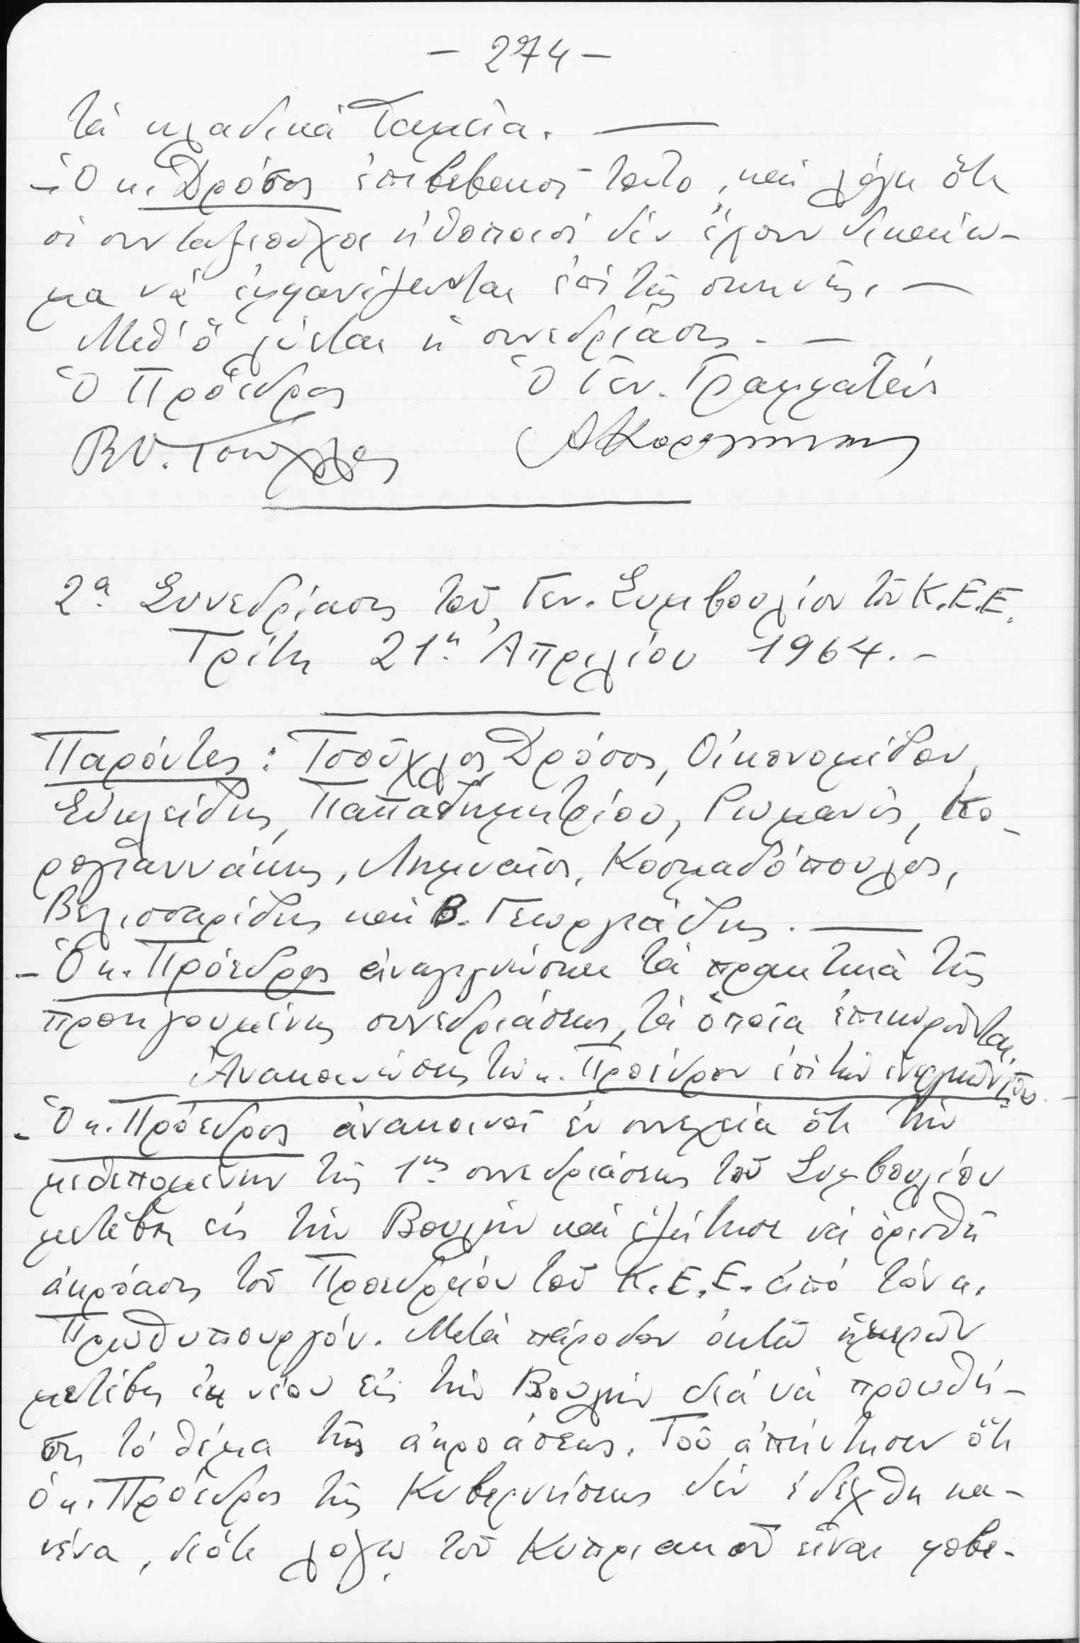 - 274 -
τά κλαδικά Ταμεῖα. —
- Ὁ κ. Δρόσος ἐπιβεβαιοῖ τοῦτο, καί λέγει ὅτι
οἱ συνταξιοῦχοι ἠθοποιοί δέν ἔχουν δικαίω-
μα νά ἐμφανίζωνται ἐπί τῆς σκηνῆς. —
Μεθ' ὅ λύεται ἡ συνεδρίασις. —
Ὁ Πρόεδρος Ὁ Γεν. Γραμματεύς
2α Συνεδρίασις τοῦ Γεν. Συμβουλίου τοῦ Κ.Ε.Ε.
Τρίτη 21η Ἀπριλίου 1964. -
Παρόντες: Τσοῦχλος, Δρόσος, Οἰκονομίδου,
Εὐκλείδης, Παπαδημητρίου, Ρωμανός, Κο-
ρογιαννάκης, Λημναῖος, Κοσμαδόπουλος,
Βελισσαρίδης καί Β. Γεωργιάδης. —
- Ὁ κ. Πρόεδρος ἀναγιγνώσκει τά πρακτικά τῆς
προηγουμένης συνεδριάσεως, τά ὁποῖα ἐπικυροῦνται.
Ἀνακοινώσεις τοῦ κ. Προέδρου ἐπί τῶν
- Ὁ κ. Πρόεδρος ἀνακοινοῖ ἐν συνεχεία ὅτι τήν
μεθεπομένην τῆς 1ης συνεδριάσεως τοῦ Συμβουλίου
μετέβη εἰς τήν Βουλήν καί ἐζήτησε νά ὁρισθῆ
ἀκρόασις τοῦ Προεδρείου τοῦ Κ.Ε.Ε. ἀπό τόν κ.
Πρωθυπουργόν. Μετά πάροδον ὀκτώ ἡμερῶν
μετέβη ἐκ νέου εἰς τήν Βουλήν διά νά προωθή-
ση τό θέμα τῆς ἀκροάσεως. Τοῦ ἀπήντησαν ὅτι
ὁ κ. Πρόεδρος τῆς Κυβερνήσεως δέν ἐδέχθη κα-
νένα, διότι λόγῳ τοῦ Κυπριακοῦ εἶναι φοβε-